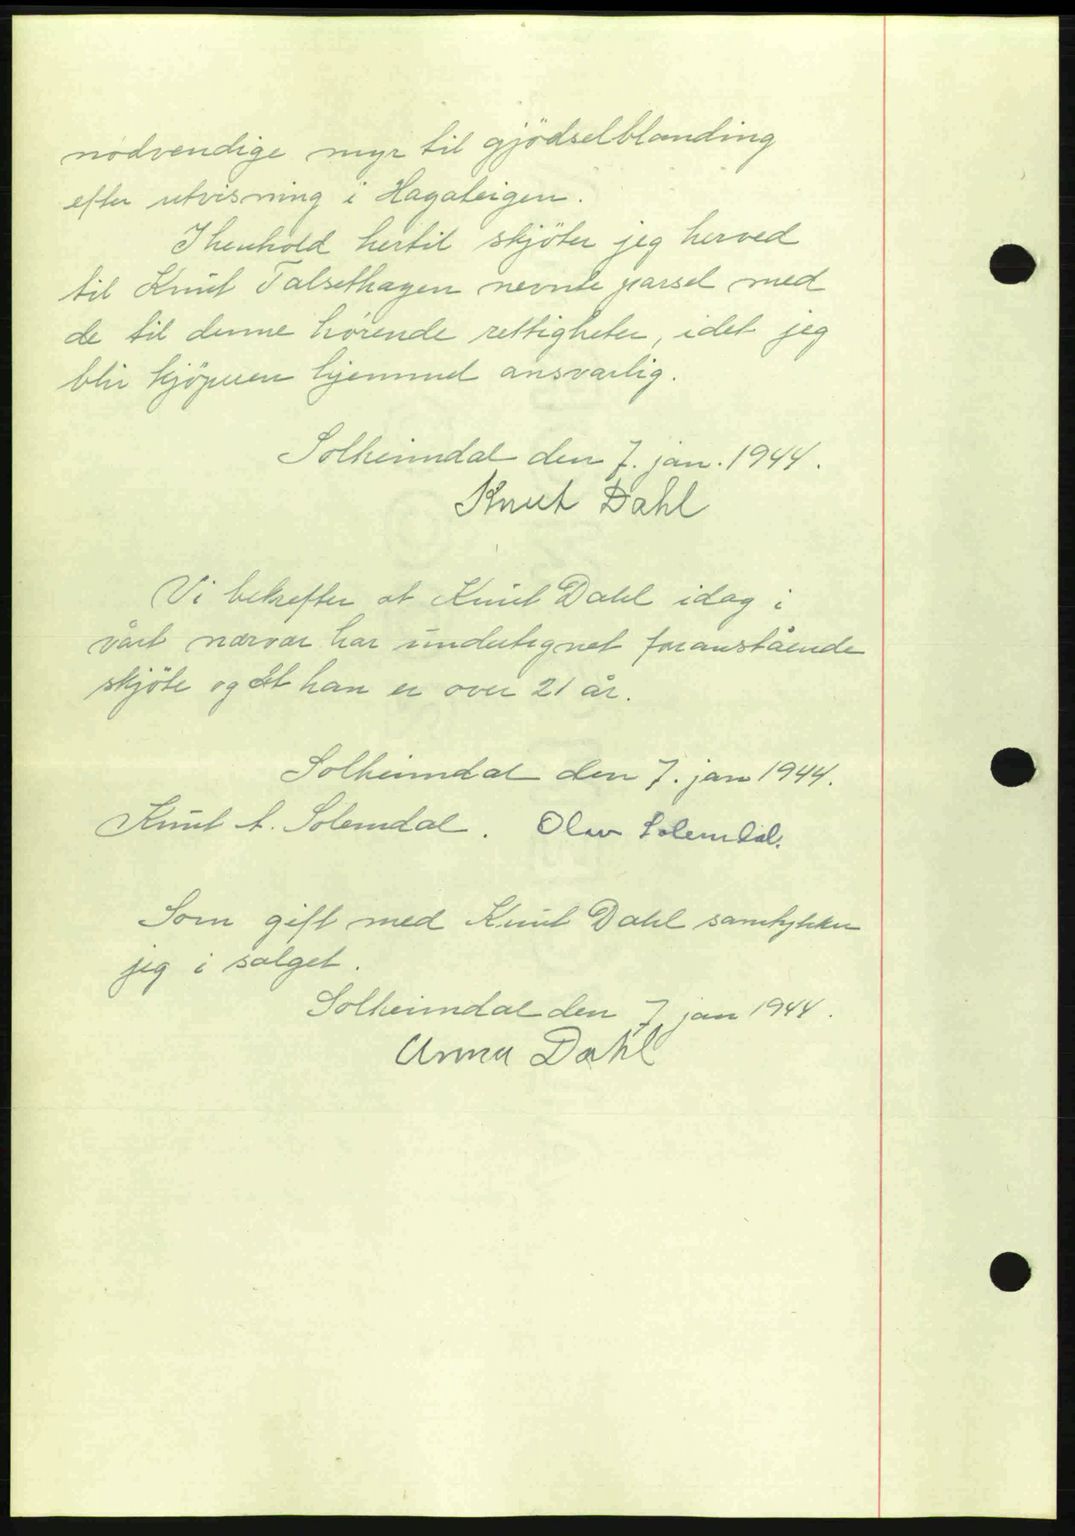 nødvendige myr til gjödselblanding
efter utvisning i Hagateigen.
I henhold hertil skjöter jeg herved
til Knut Talsethagen nevnte parsel med
de til denne hørende rettigheter, idet jeg
blir kjöperen hjemmel ansvarlig.
Solheimdal den 7. jan. 1944.
Knut Dahl
Vi bekrefter at Knut Dahl idag i
vårt nærvær har undertegnet foranstående
skjöte og at han er over 21 år.
Solheimdal den 7. jan 1944.
Knut A. Solemdal. Olav Solemdal.
Som gift med Knut Dahl samtykker
jeg i salget.
Solheimdal den 7 jan 1944.
Anna Dahl